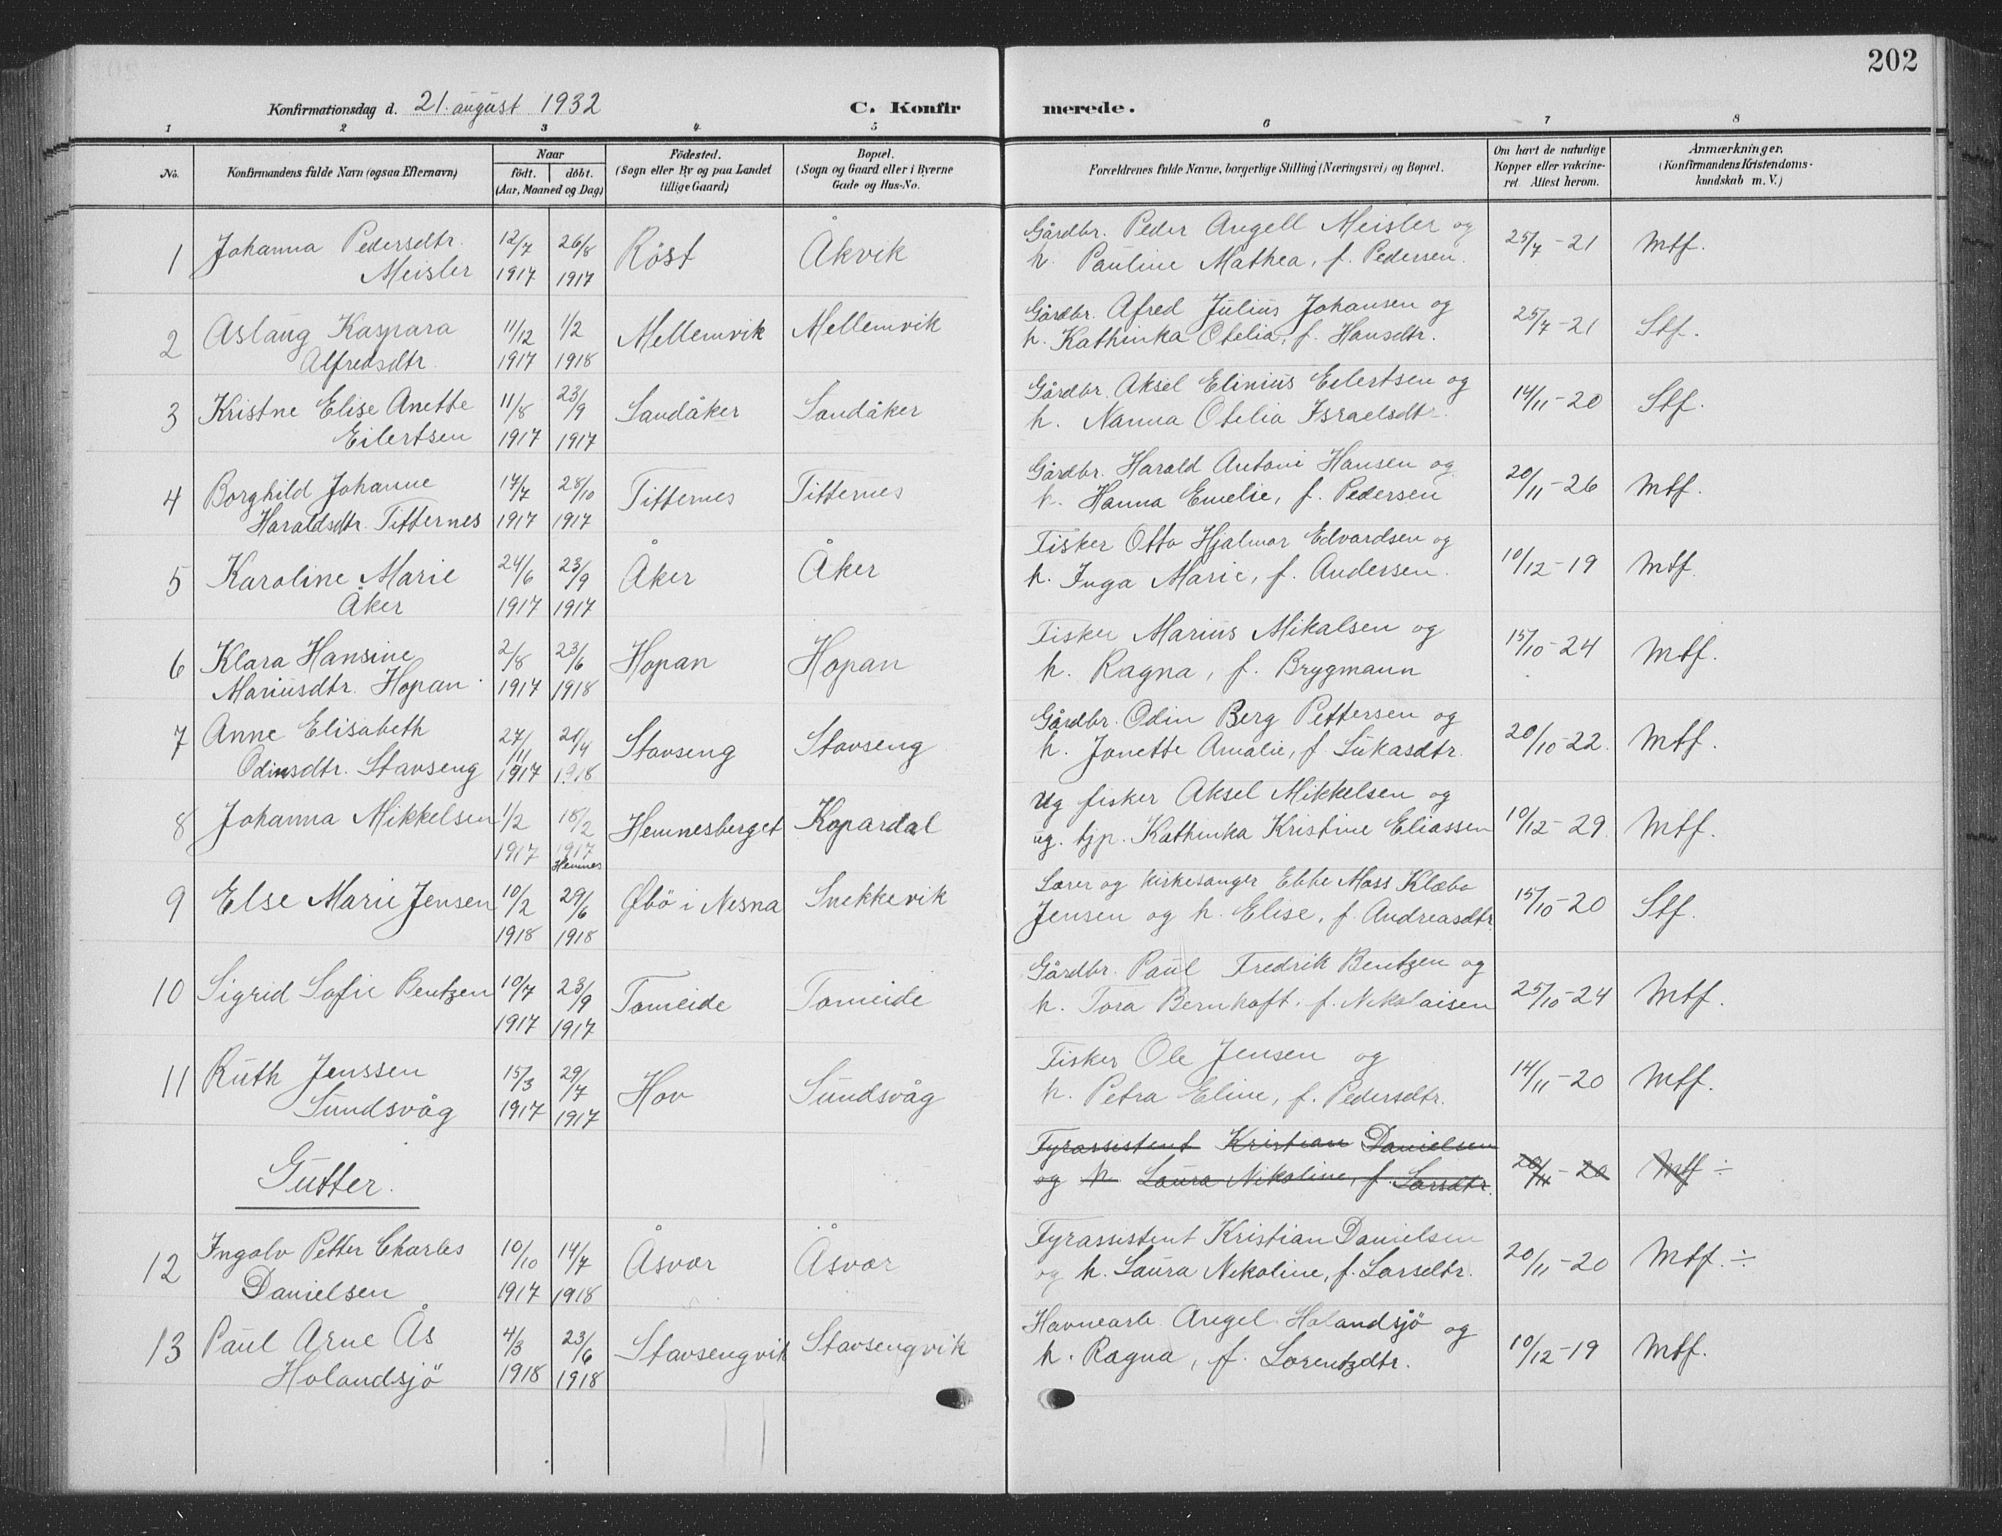 202
Konfirmationsdag d. 21. august 1932
C. Konfirmerede.
1 2 3 4 5 6 7 8
No. Konfirmandens fulde Navn (ogsaa Efternavn) Naar født. døbt. (Aar, Maaned og Dag) Fødested. (Sogn eller By og paa Landet tillige Gaard) Bopæl. (Sogn og Gaard eller i Byerne Gade og Hus-No. Forældrenes fulde Navne, borgerlige Stilling (Næringsvei) og Bopæl. Om havt de naturlige Kopper eller vakcineret. Attest herom. Anmærkninger, (Konfirmandens Kristendomskundskab m. V.)
1 Johanna Pedersdtr. 12/7 26/8 Röst Åkvik Gårdbr. Peder Angell Meisler og 25/7-21 Mtf.
Meisler 1917 1917 h. Pauline Mathea, f. Pedersen.
2 Aslaug Kaspara 11/12 1/2 Mellemvik Mellemvik Gårdbr. Afred Julius Johansen og 25/7-21 Stf.
Alfredsdtr. 1917 1918 h. Kathinka Otelia, f. Hansdtr.
3 Kristne Elise Anette 11/8 23/9 Sandåker Sandåker Gårdbr. Aksel Elinius Eilertsen og 14/11-20 Stf.
Eilertsen 1917 1917 h. Nanna Otelia Israelsdtr.
4 Borghild Johanne 17/7 28/10 Titternes Titternes Gårdbr. Harald Antoni Hansen og 20/11-26 Mtf.
Haraldsdtr. Titternes 1917 1917 h. Hanna Emelie, f. Pedersen
5 Karoline Marie 24/6 23/9 Åker Åker Fisker Otto Hjalmar Edvardsen og 10/12-19 Mtf.
Åker 1917 1917 h. Inga Marie, f. Andersen.
6 Klara Hansine 2/8 23/6 Hopan Hopan Fisker Marius Mikalsen og 15/10-24 Mtf.
Mariusdtr. Hopan. 1917 1918 h. Ragna, f. Brygmann
7 Anne Elisabeth 27/11 21/4 Stavseng Stavseng Gårdbr. Odin Berg Pettersen og 20/10-22. Mtf.
Odinsdtr. Stavseng 1917 1918 h. Jonette Amalie, f. Lukasdtr.
8 Johanna Mikkelsen 1/2 18/2 Hemnesberget Kopardal Ug fisker Aksel Mikkelsen og 10/12-29 Mtf.
1917 1917 Hemnes ug. tjp. Kathinka Kristine Eliassen
9 Else Marie Jensen 10/2 29/6 Øbö i Nesna Snekkevik Lærer og kirkesanger Ebbe Mass Klæbo 15/10-20 Stf.
1918 1918 Jensen og h. Elise, f. Andreasdtr
10 Sigrid Sofie Bentzen 10/7 23/9 Tomeide Tomeide Gårdbr. Paul Fredrik Bentzen og 25/10-24 Mtf.
1917 1917 h. Tora Bernhoft. f. Nikolaisen
11 Ruth Jenssen 15/3 29/7 Hov Sundsvåg Fisker Ole Jensen og 14/11-20 Mtf.
Sundsvåg 1917 1917 h. Petra Eline, f. Pedersdtr.
Fyrassistent Kristian Danielsen
Gutter. og h. Laura Nikoline, f. Larsdtr. 20/11-20 Mtf ÷
12 Ingolv Petter Charles 10/10 14/7 Åsvær Åsvær Fyrassistent Kristian Danielsen 20/11-20 Mtf. ÷
Danielsen 1917 1918 og h. Laura Nikoline, f. Larsdtr.
13 Paul Arne Ås 4/3 23/6 Stavsengvik Stavsengvik Havnearb. Angel Holandsjö og 10/12-19 Mtf.
Holandsjö 1918 1918 h. Ragna, f. Lorentzdtr.